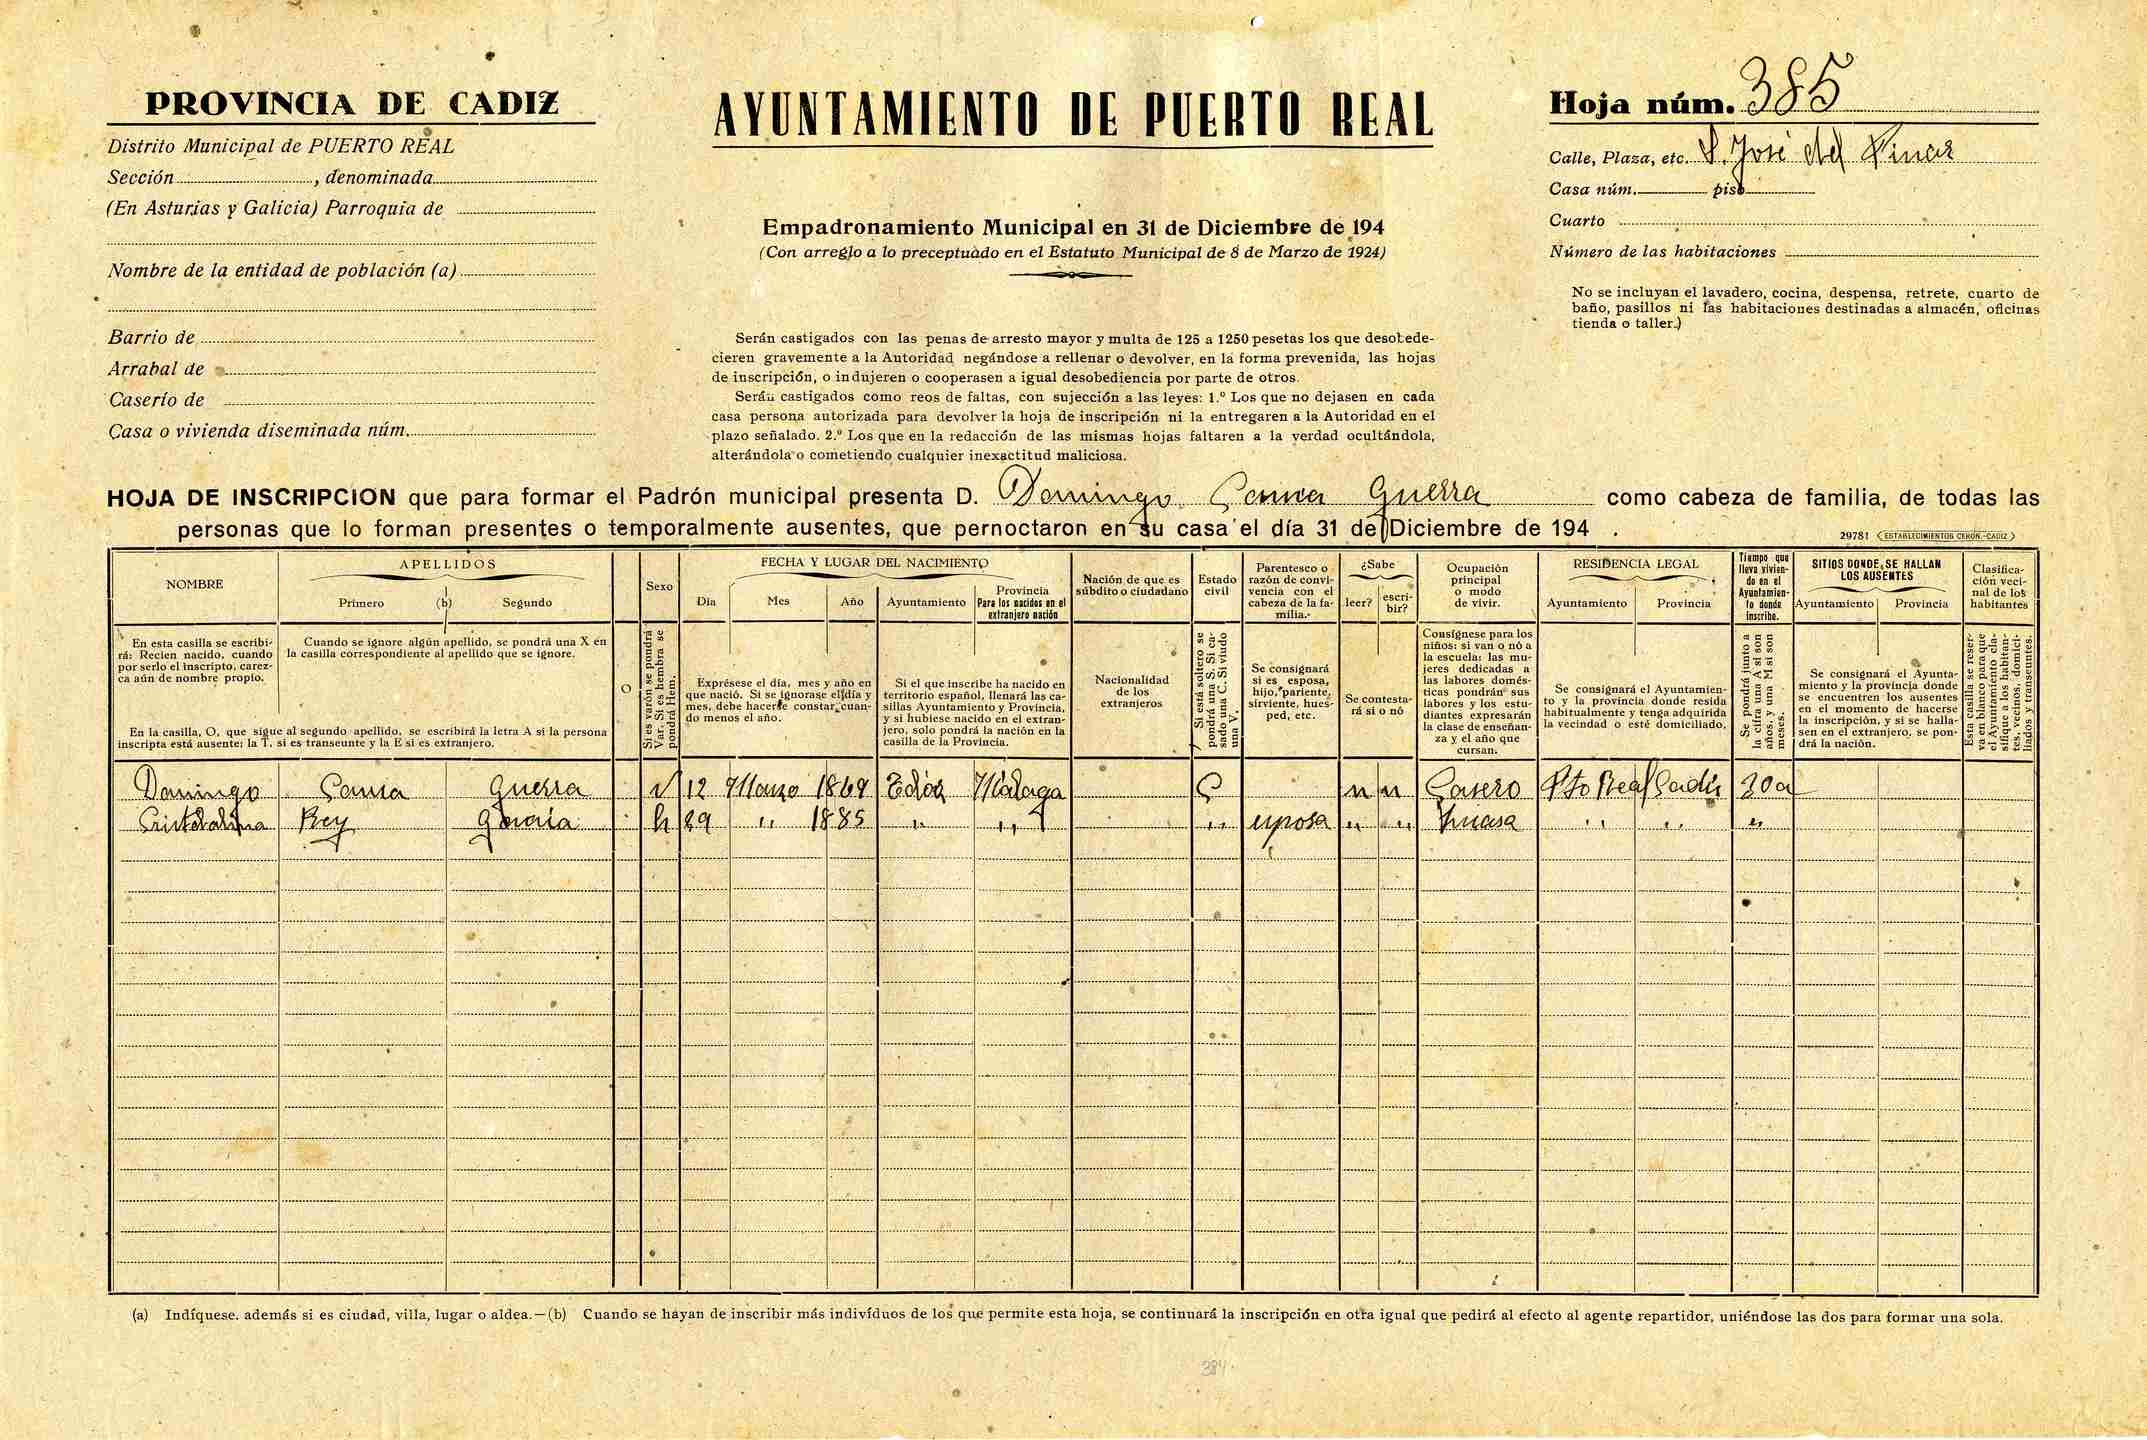 PROVINCIA DE CADIZ
Distrito Municipal de PUERTO REAL
Sección , denominada
(En Asturias y Galicia) Parroquia de
Nombre de la entidad de población (a)
Barrio de
Arrabal de
Caserío de
Casa o vivienda diseminada núm.
AYUNTAMIENTO DE PUERTO REAL
Empadronamiento Municipal en 31 de Diciembre de 194
(Con arreglo a lo preceptuado en el Estatuto Municipal de 8 de Marzo de 1924)
Serán castigados con las penas de arresto mayor y multa de 125 a 1250 pesetas los que desobede-
cieren gravemente a la Autoridad negándose a rellenar o devolver, en la forma prevenida, las hojas
de inscripción, o indujeren o cooperasen a igual desobediencia por parte de otros.
Serán castigados como reos de faltas, con sujección a las leyes: 1.º Los que no dejasen en cada
casa persona autorizada para devolver la hoja de inscripción ni la entregaren a la Autoridad en el
plazo señalado. 2.º Los que en la redacción de las mismas hojas faltaren a la verdad ocultándola,
alterándola o cometiendo cualquier inexactitud maliciosa.
Hoja núm. 385
Calle, Plaza, etc. S. José del Pinar
Casa núm. piso
Cuarto
Número de las habitaciones
No se incluyan el lavadero, cocina, despensa, retrete, cuarto de
baño, pasillos ni las habitaciones destinadas a almacén, oficinas
tienda o taller.)
HOJA DE INSCRIPCION que para formar el Padrón municipal presenta D. Domingo Guerra como cabeza de familia, de todas las
personas que lo forman presentes o temporalmente ausentes, que pernoctaron en su casa el día 31 de Diciembre de 194 .
29781 (ESTABLECIMIENTOS CERÓN.-CADIZ)
NOMBRE
APELLIDOS
Primero (b) Segundo
Sexo
FECHA Y LUGAR DEL NACIMIENTO
Día Mes Año Ayuntamiento
Provincia
Para los nacidos en el
extranjero nación
Nación de que es
súbdito o ciudadano
Estado
civil
Parentesco o
razón de convi-
vencia con el
cabeza de la fa-
milia.-
¿Sabe
leer? escri-
bir?
Ocupación
principal
o modo
de vivir.
RESIDENCIA LEGAL
Ayuntamiento Provincia
Tiempo que
lleva vivien-
do en el
Ayuntamien-
to donde
inscribe.
SITIOS DONDE SE HALLAN
LOS AUSENTES
Ayuntamiento Provincia
Clasifica-
ción veci-
nal de los
habitantes
En esta casilla se escribi-
rá: Recien nacido, cuando
por serlo el inscripto, carez-
ca aún de nombre propio.
Cuando se ignore algún apellido, se pondrá una X en
la casilla correspondiente al apellido que se ignore.
En la casilla, O, que sigue al segundo apellido, se escribirá la letra A si la persona
inscripta está ausente; la T, si es transeunte y la E si es extranjero.
O
Si es varón se pondrá
Var. Si es hembra se
pondrá Hem.
Exprésese el día, mes y año en
que nació. Si se ignorase el día y
mes, debe hacerse constar, cuan-
do menos el año.
Si el que inscribe ha nacido en
territorio español, llenará las ca-
sillas Ayuntamiento y Provincia,
y si hubiese nacido en el extran-
jero, solo pondrá la nación en la
casilla de la Provincia.
Nacionalidad
de los
extranjeros
Si está soltero se
pondrá una S. Si ca-
sado una C. Si viudo
una V.
Se consignará
si es esposa,
hijo, pariente,
sirviente, hués-
ped, etc.
Se contesta-
rá si o nó
Consígnese para los
niños: si van o nó a
la escuela: las mu-
jeres dedicadas a
las labores domés-
ticas pondrán sus
labores y los estu-
diantes expresarán
la clase de enseñan-
za y el año que
cursan.
Se consignará el Ayuntamien-
to y la provincia donde resida
habitualmente y tenga adquirida
la vecindad o esté domiciliado.
Se pondrá junto a
la cifra una A si son
años, y una M si son
meses.
Se consignará el Ayunta-
miento y la provincia donde
se encuentren los ausentes
en el momento de hacerse
la inscripción, y si se halla-
sen en el extranjero, se pon-
drá la nación.
Esta casilla se reser-
va en blanco para que
el Ayuntamiento cla-
sifique a los habitan-
tes, vecinos, domici-
liados y transeuntes.
Domingo Guerra v 12 Marzo 1869 Málaga C n n Casero Pto Real Cadiz 30 a
Rey García h 29 " 1885 " " " esposa " " " " "
(a) Indíquese. además si es ciudad, villa, lugar o aldea.—(b) Cuando se hayan de inscribir más indivíduos de los que permite esta hoja, se continuará la inscripción en otra igual que pedirá al efecto al agente repartidor, uniéndose las dos para formar una sola.
384